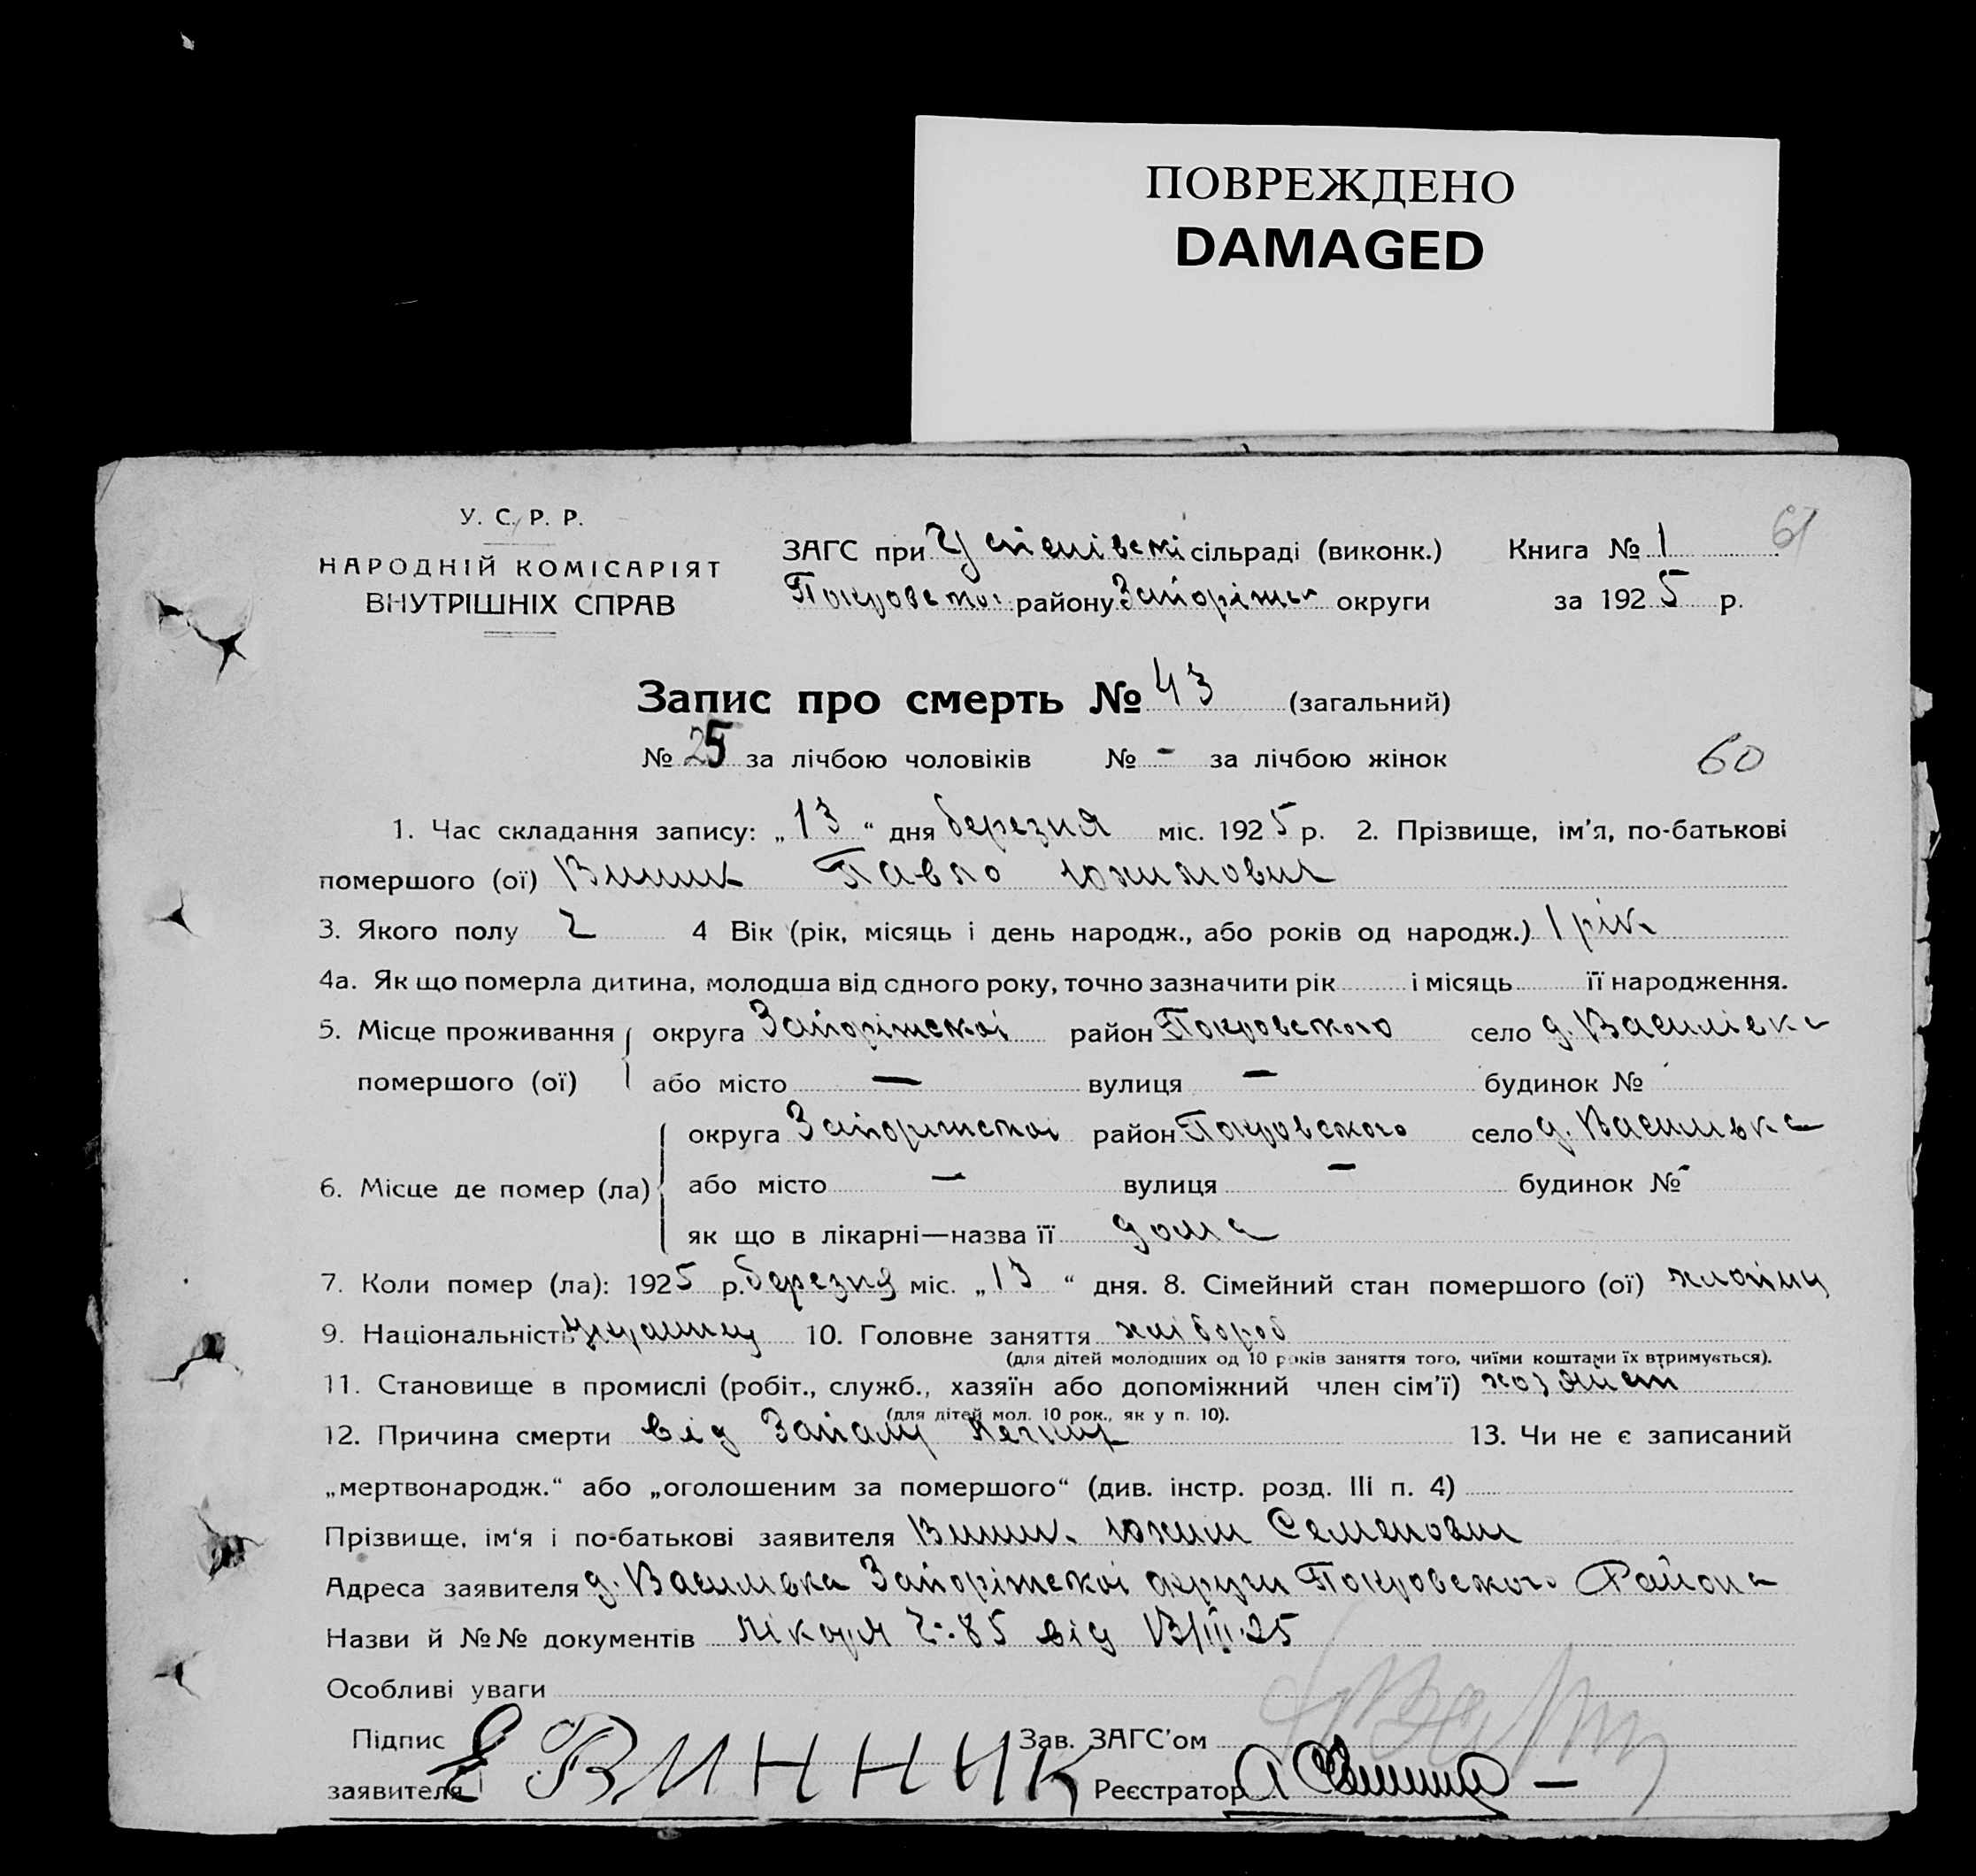 ПОВРЕЖДЕНО
DAMAGED
У. С. Р. Р.
НАРОДНІЙ КОМІСАРІЯТ
ВНУТРІШНІХ СПРАВ
ЗАГС при Успенівскі сільраді (виконк.)
Покровської району Запоріжськ округи
Книга № 1
за 1925 р.
61
Запис про смерть № 43 (загальний)
№ 25 за лічбою чоловіків № - за лічбою жінок
60
1. Час складання запису: „13“ дня березня міс. 1925 р. 2. Прізвище, ім'я, по-батькові
помершого (ої) Винник Павло Юхимович
3. Якого полу Ч 4 Вік (рік, місяць і день народж., або років од народж.) 1 рік
4а. Як що померла дитина, молодша від одного року, точно зазначити рік і місяць її народження.
5. Місце проживання помершого (ої) округа Запоріжскої район Покровского село д. Василівка
або місто — вулиця — будинок №
6. Місце де помер (ла) округа Запоріжскої район Покровского село д. Василівка
або місто — вулиця — будинок № -
як що в лікарні—назва її дома
7. Коли помер (ла): 1925 р. березня міс. „13“ дня. 8. Сімейний стан помершого (ої) хлопець
9. Національність українець 10. Головне заняття хлібороб
(для дітей молодших од 10 років заняття того, чиїми коштами їх втримується).
11. Становище в промислі (робіт., служб., хазяїн або допоміжний член сім'ї) хозяїн
(для дітей мол. 10 рок., як у п. 10).
12. Причина смерти від Запалу легких 13. Чи не є записаний
„мертвонародж.“ або „оголошеним за помершого“ (див. інстр. розд. III п. 4)
Прізвище, ім'я і по-батькові заявителя Винник Юхим Семенович
Адреса заявителя д. Василівка Запоріжскої округи Покровского Района
Назви й №№ документів Лікаря Ч: 85 від 13/III 25
Особливі уваги
Підпис заявителя Е ВИННИК
Зав. ЗАГС'ом
Реєстратор